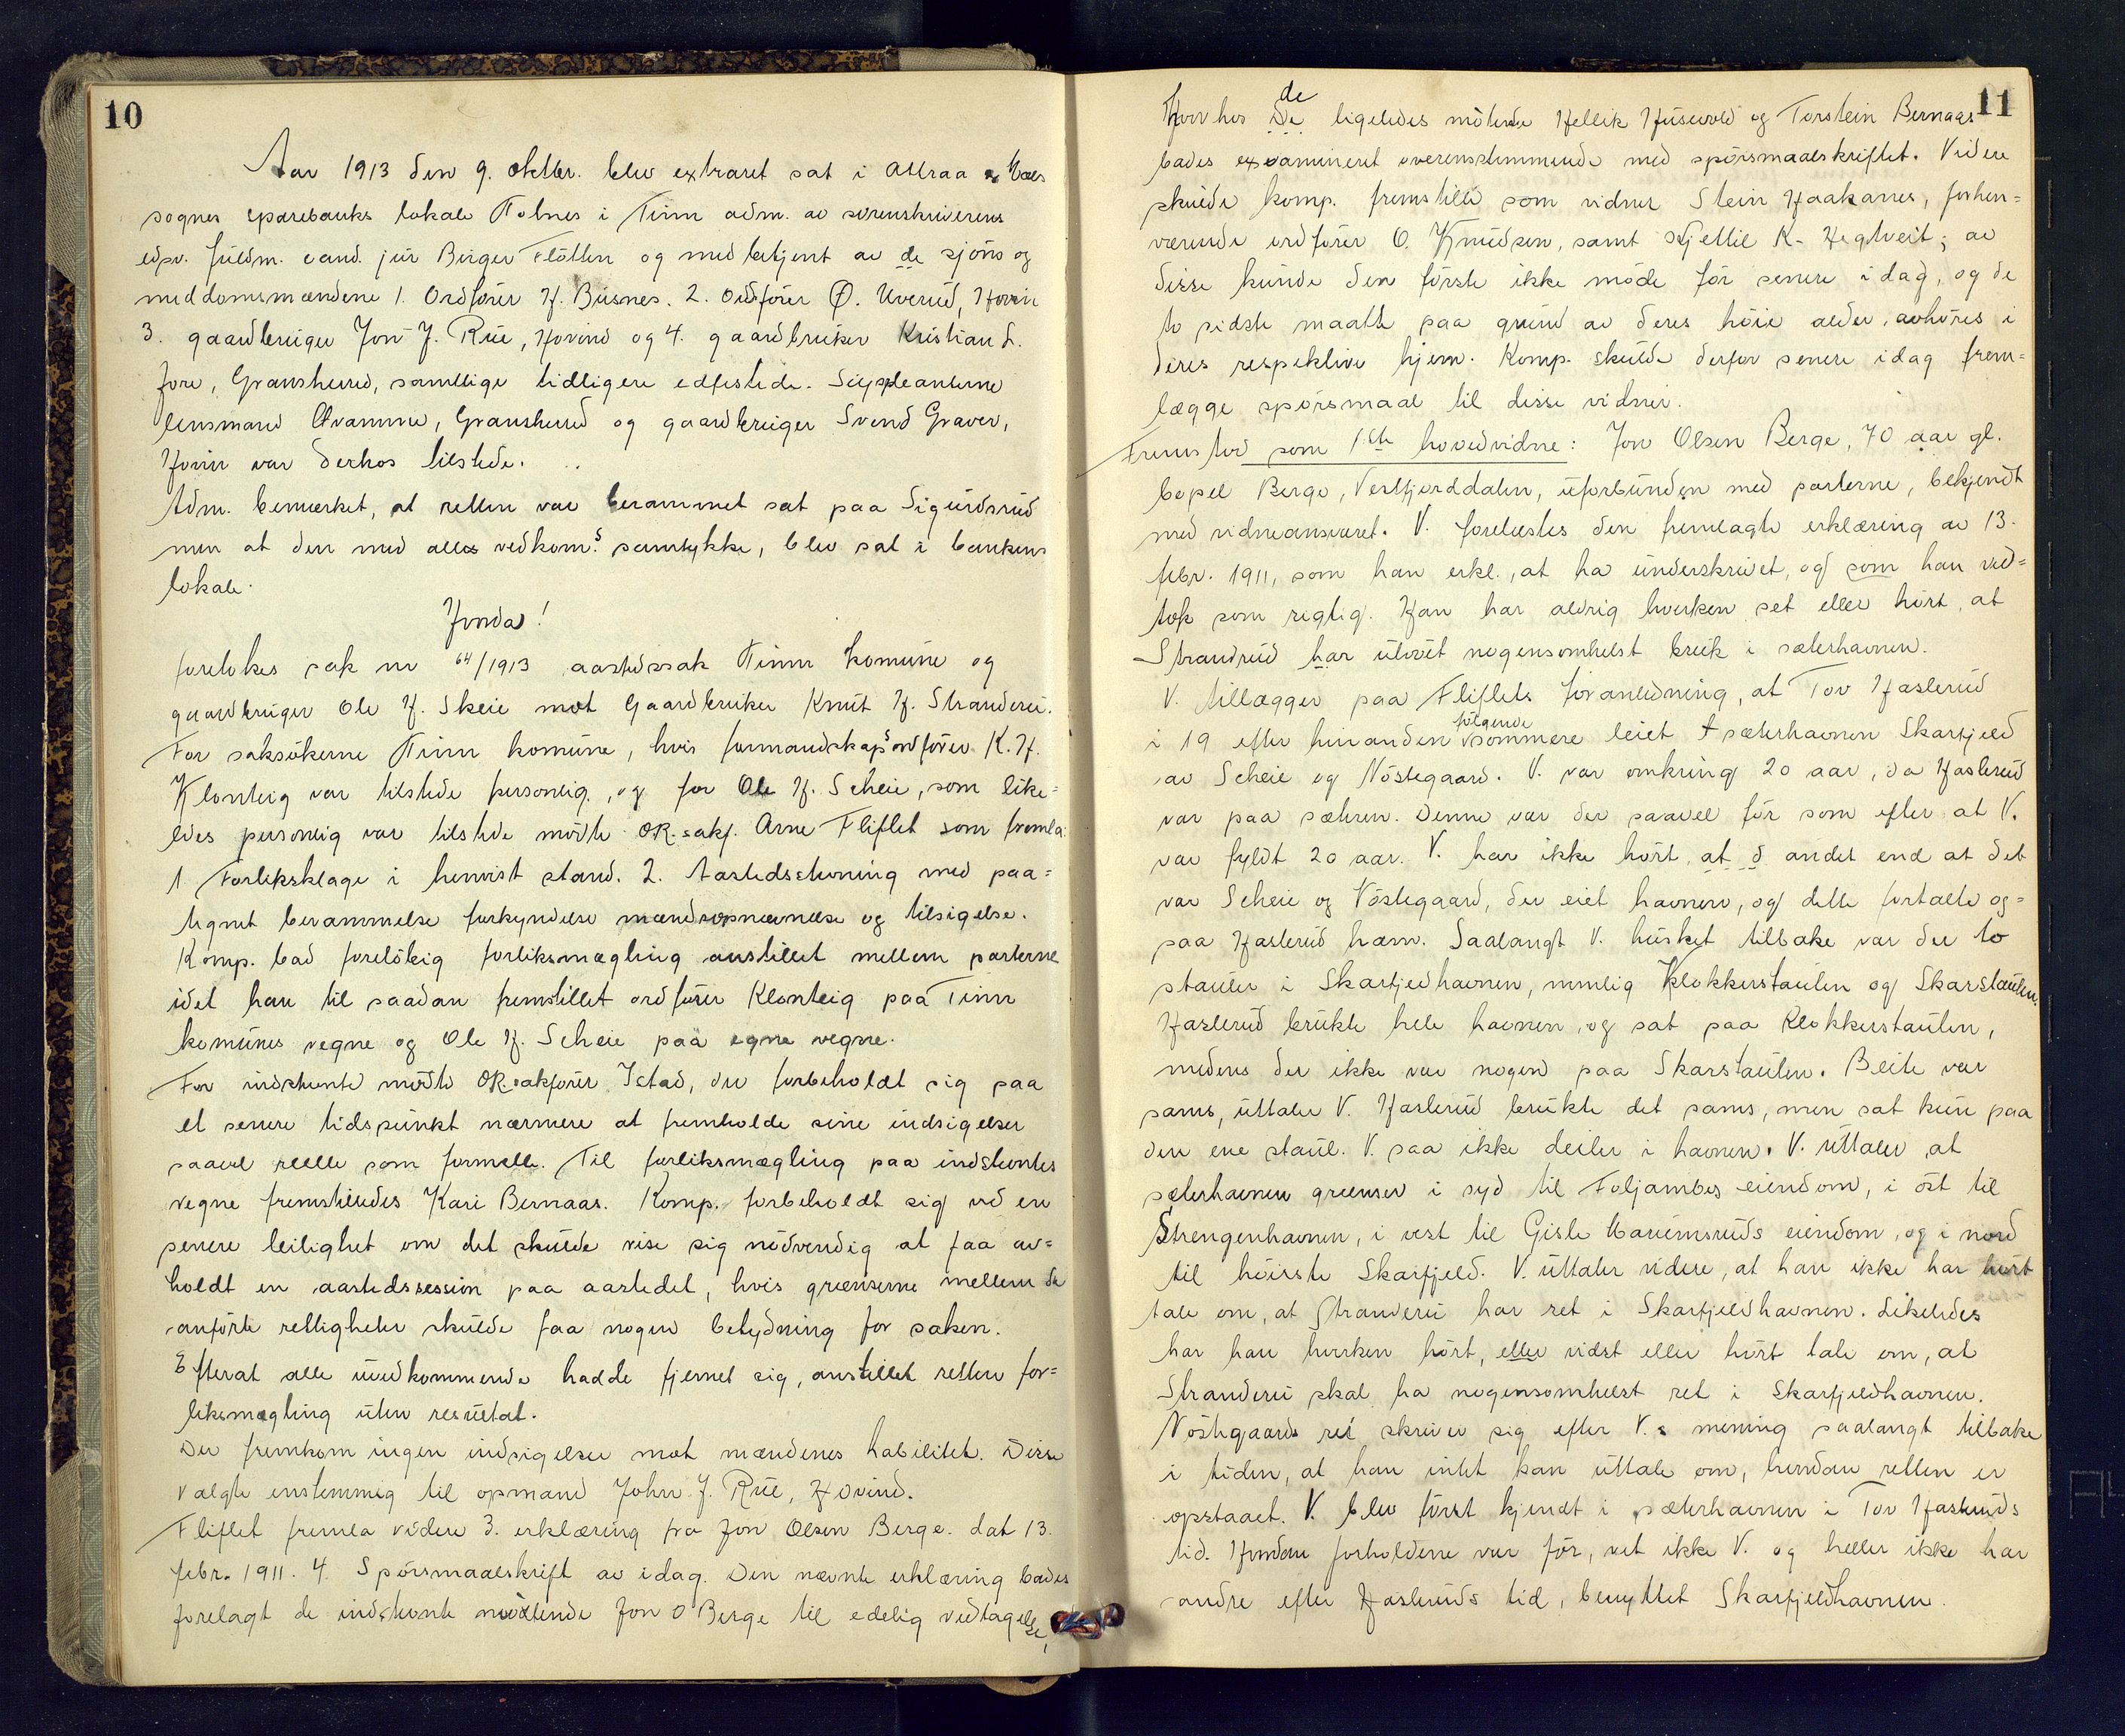 10
Aar 1913 den 9. oktbr. blev extraret sat i Attraa & Mæls
sognes sparebanks lokale Tolnes i Tinn adm. av sorenskriverens
edsv. fuldm. cand. jur Birger Flötten og med betjent av de sjöns og
meddomsmændene 1. Ordförer H. Busnes. 2. Ordförer Ø. Uverud, Hovin
3. gaardbruger Jon J. Rue, Hovind og 4. gaardbruker Kristian L.
Fore, Gransherred, samtlige tidligere edfestede. Suppleanterne
lensmand Kvamme, Gransherred og gaardbruger Svend Graver,
Hovin var derhos tilstede.
Adm. bemerket, at retten var berammet sat paa Sigurdsrud
men at den med alles vedkom.s samtykke, blev sat i bankens
lokale.
Hvorda!
foretokes sak nr 64/1913 aastedssak Tinn komune og
gaardbruger Ole H. Skeie mot Gaardbruker Knut H. Stranderu.
For saksökerne Tinn komune, hvis formandskapsordförer K. H.
Klonteig var tilstede personlig, og for Ole H. Scheie, som like=
ledes personlig var tilstede mödte OR.sakf. Arne Fliflet som fremla:
1 Forliksklage i henvist stand. 2. Aastedsstevning med paa=
tegnet berammelse forkyndelse mændsopnævnelse og tilsigelse.
Komp. bad forelökig forliksmægling anstillet mellem parterne
idet han til saadan fremstillet ordförer Klonteig paa Tinn
komunes vegne og Ole H. Scheie paa egne vegne.
For indstevnte mödte OR.sakförer Istad, der forbeholdt sig paa
et senere tidspunkt nærmere at fremholde sine indsigelser
saavel reelle som formelle. Til forliksmægling paa indstevntes
vegne fremstilledes Kari Bernaas. Komp. forbeholdt sig ved en
senere leilighet om det skulde vise sig nödvendig at faa av=
holdt en aastedssession paa aastedet, hvis grænserne mellem de
anförte rettigheter skulde faa nogen betydning for saken.
Efterat alle uvedkommende hadde fjernet sig, anstillet retten for=
liksmægling uten resultat.
Der fremkom ingen indsigelser mot mændenes habilitet. Disse
valgte enstemmig til opmand John J. Rue, Hovind.
Fliflet fremla videre 3. erklæring fra Jon Olsen Berge. dat 13.
febr. 1911. 4. Spörsmaalskrift av idag. Den nævnte erklæring bades
forelagt de indstevnte mödtende Jon O Berge til edelig vedtagelse,
11
Hvorhos De de ligeledes mötende Hellik Husevold og Torstein Bernaas
bades examineret overensstemmende med spörsmaalskriftet. Videre
skulde komp. fremstille som vidner Stein Haakanes, forhen=
værende ordförer O. Knudsen, samt Kjettil K. Hegtveit; av
disse kunde den förste ikke möde för senere idag, og de
to sidste maatte paa grund av deres höie alder, avhöres i
deres respektive hjem. Komp. skulde derfor senere idag frem=
lægge spörsmaal til disse vidner.
Fremstod som 1ste hovedvidne: Jon Olsen Berge, 70 aar gl.
bopel Berge, Vestfjorddalen, uforbunden med parterne, bekjendt
med vidneansvaret. V. forelæstes den fremlagte erklæring av 13.
febr. 1911, som han erkl., at ha underskrivet, og som han ved=
tok som rigtig. Han har aldrig hverken set eller hört, at
Strandrud har utövet nogensomhelst bruk i sæterhavnen.
V. tillægger paa Fliflets foranledning, at Tov Haslerud
i 19 efter hinanden følgende sommere leiet sæterhavnen Skarfjeld
av Scheie og Nöstegaard. V. var omkring 20 aar, da Haslerud
var paa sæteren. Denne var der saavel för som efter at V.
var fyldt 20 aar. V. har ikke hört at d andet end at det
var Scheie og Nöstegaard, der eiet havnen, og dette fortalte og=
paa Haslerud ham. Saalangt V. husket tilbake var der to
stauler i Skarfjeldhavnen, nemlig Klokkerstaulen og Skarstaulen.
Haslerud brukte hele havnen, og sat paa Klokkerstaulen,
medens der ikke var nogen paa Skarstaulen. Beite var
sams, uttaler V. Haslerud brukte det sams, men sat kun paa
den ene staul. V. saa ikke deiler i havnen. V. uttaler at
sæterhavnen grenser i syd til Foljambes eiendom, i öst til
Strengenhavnen, i vest til Gisle Mariemsruds eiendom, og i nord
til höieste Skarfjeld. V. uttaler videre, at han ikke har hört
tale om, at Stranderu har ret i Skarfjeldhavnen. Likeledes
har han hverken hört, eller vidst eller hört tale om, at
Stranderu skal ha nogensomhelst ret i Skarfjeldhavnen.
Nöstegaards ret skriver sig efter V.s mening saalangt tilbake
i tiden, at han intet kan uttale om, hvordan retten er
opstaaet. V. blev först kjendt i sæterhavnen i Tov Hasleruds
tid. Hvordan forholdene var för, vet ikke V. og heller ikke har
andre efter Hasleruds tid, benyttet Skarfjeldhavnen.